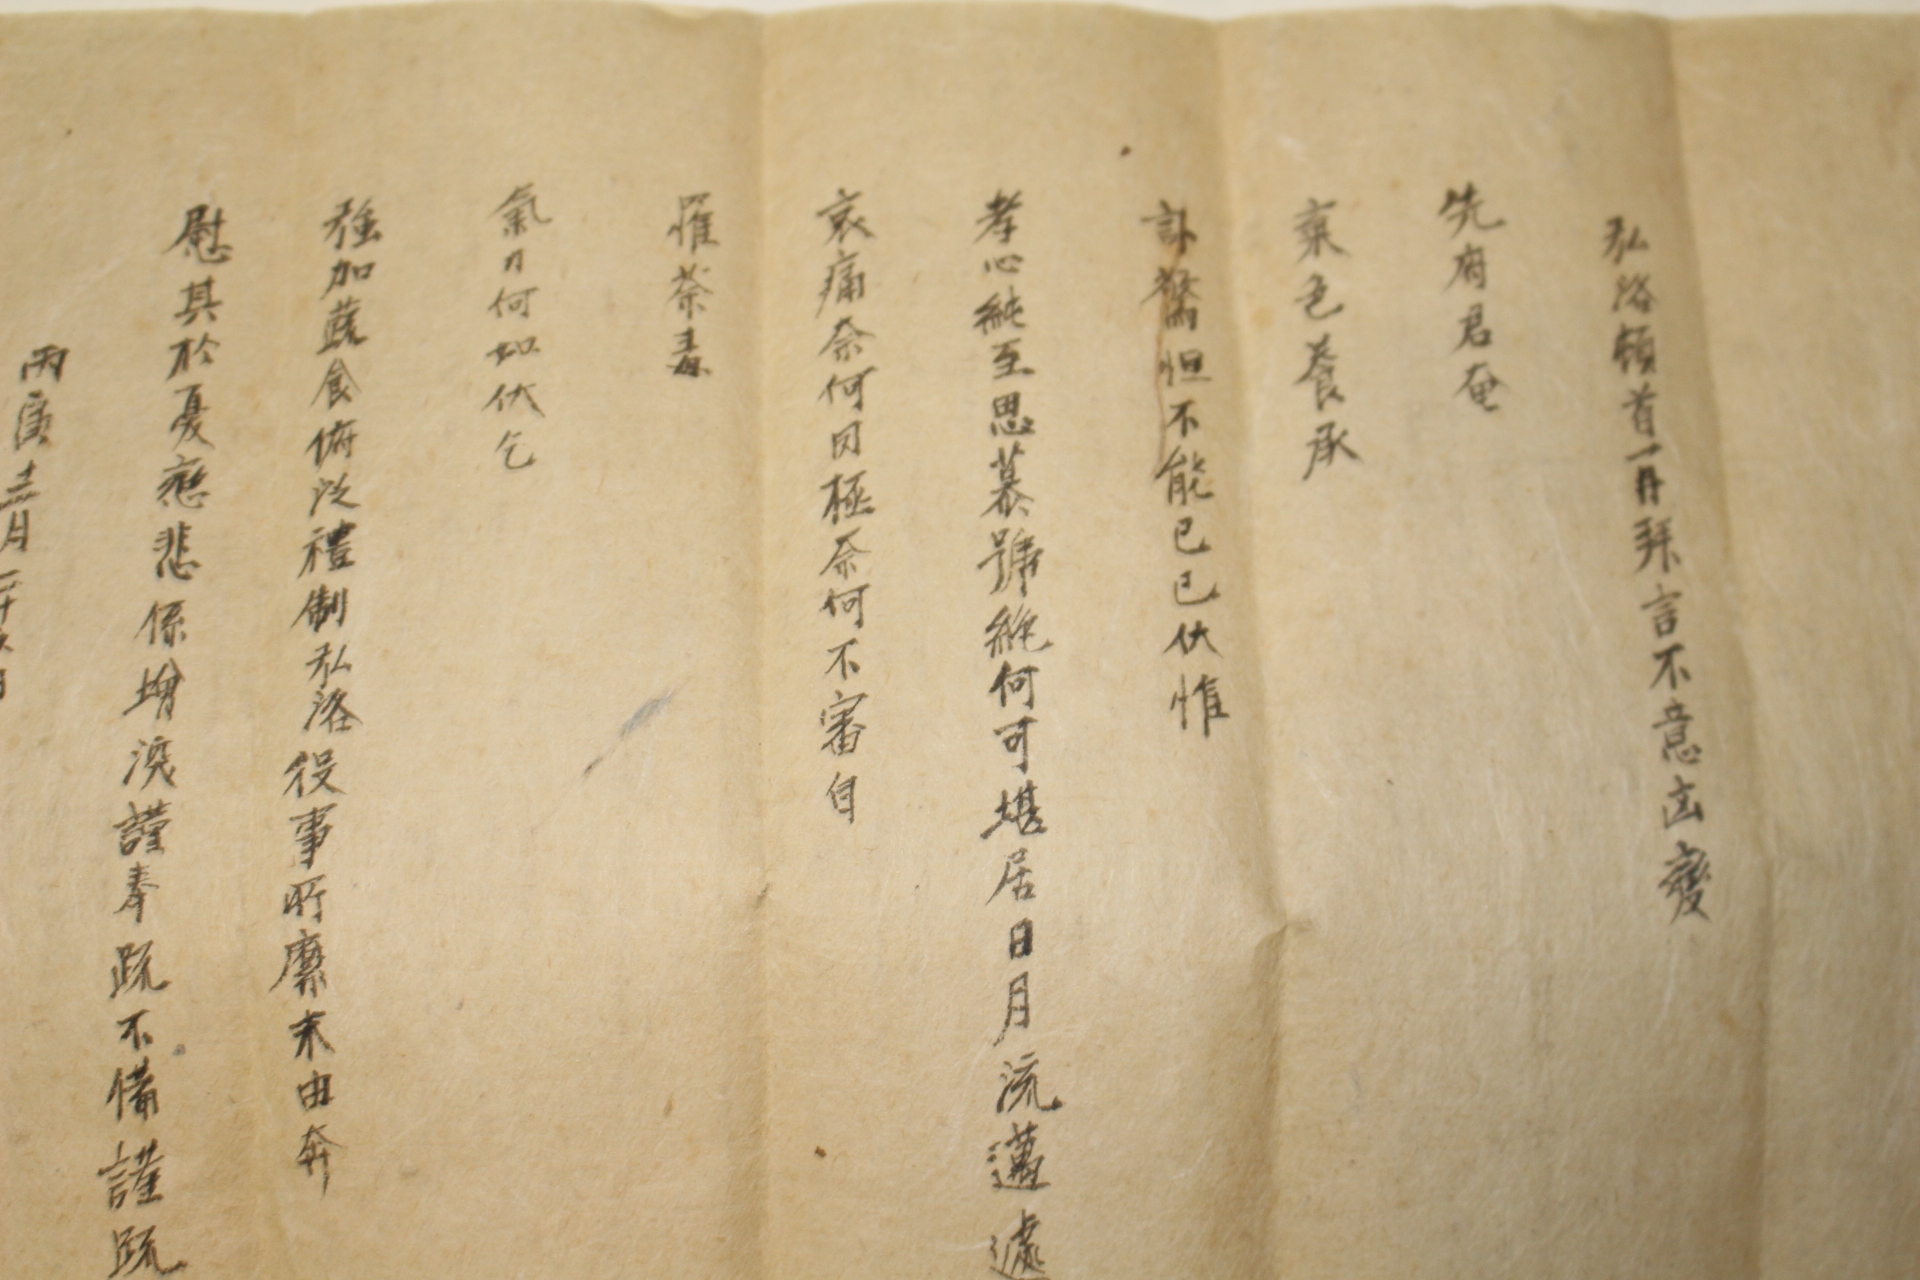 弘洛頓首再拜言不意凶變
先府君奄
棄色養承
訃驚怛不能已已伏惟
孝心純至思慕號絶何可堪居日月流邁遽
哀痛奈何罔極奈何不審自
罹荼毒
氣力何如伏乞
强加蔬食俯從禮制弘洛役事所縻末由奔
慰其於憂戀悲係增深謹奉疏不備謹疏
丙寅十二月二十